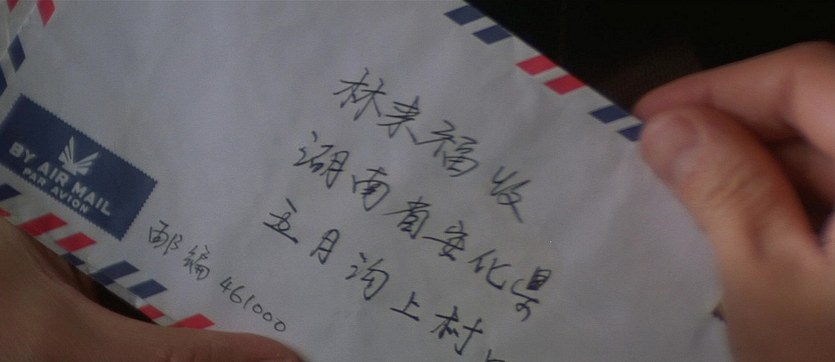 林来福收
湖南省安化县
五月沟上村
邮编 461000
BY AIR MAIL
PAR AVION